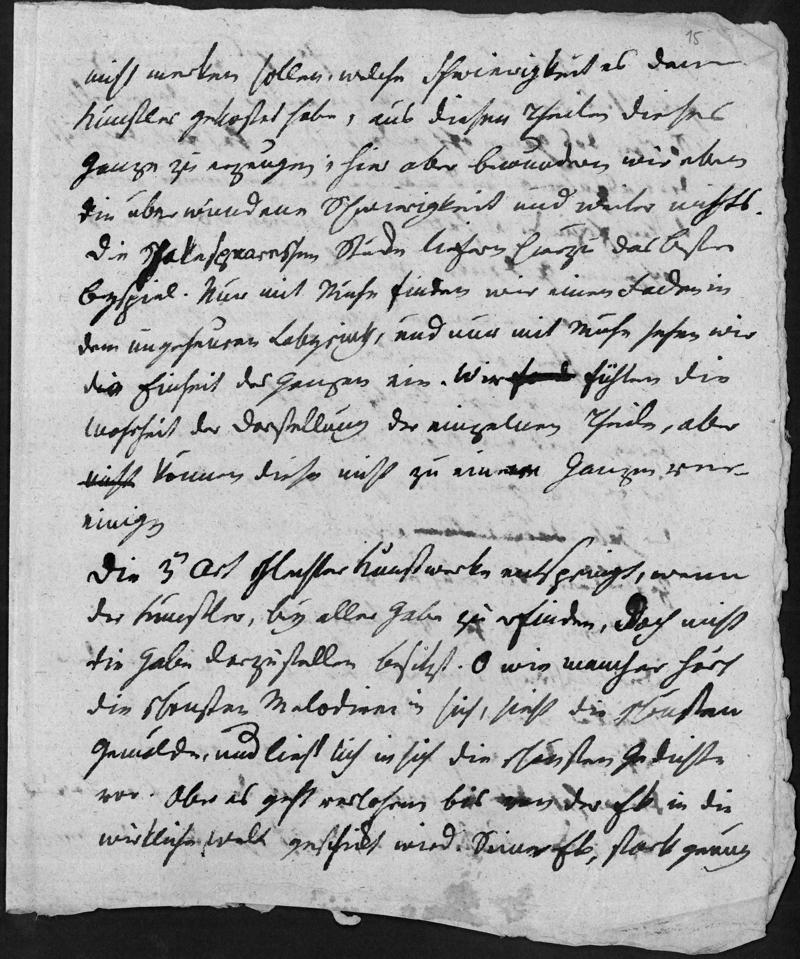 15
nicht merken sollen, welche Schwierigkeit es dem
Künstler gekostet habe, aus diesen Theilen dieses
Ganze zu erzeugen; hier aber bewundern wir eben
die überwundene Schwierigkeit und weiter nichts.
Die Shakespeareschen Stücke liefern hierzu das beste
Beyspiel. Nur mit Mühe finden wir einen Faden in
dem ungeheuren Labyrinth, und nur mit Mühe sehen wir
die Einheit des Ganzen ein. Wir fühlen die
Wahrheit der Darstellung der einzelnen Theile, aber
nicht können diese nicht zu einem Ganzen ver-
einigen
Die 3te Art schlechter Kunstwerke entspringt, wenn
der Künstler, bey aller Gabe zu erfinden, doch nicht
die Gabe darzustellen besitzt. O wie mancher hört
die schönsten Melodieen in sich, sieht die schönsten
Gemälde, und ließt sich in sich die schönsten Gedichte
vor. Aber es geht verlohren bis von der in die
wirkliche Welt geschickt wird. Seiner stark genug